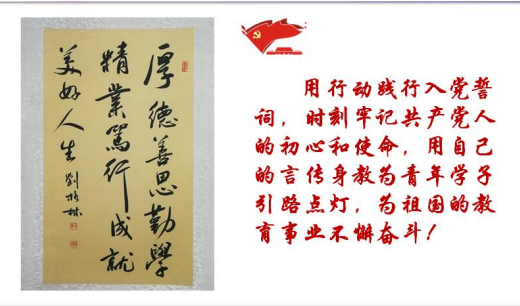 厚德善思勤學
精業篤行成就
美好人生
用行动践行入党誓
词，时刻牢记共产党人
的初心和使命，用自己
的言传身教为青年学子
引路点灯，为祖国的教
育事业不懈奋斗！